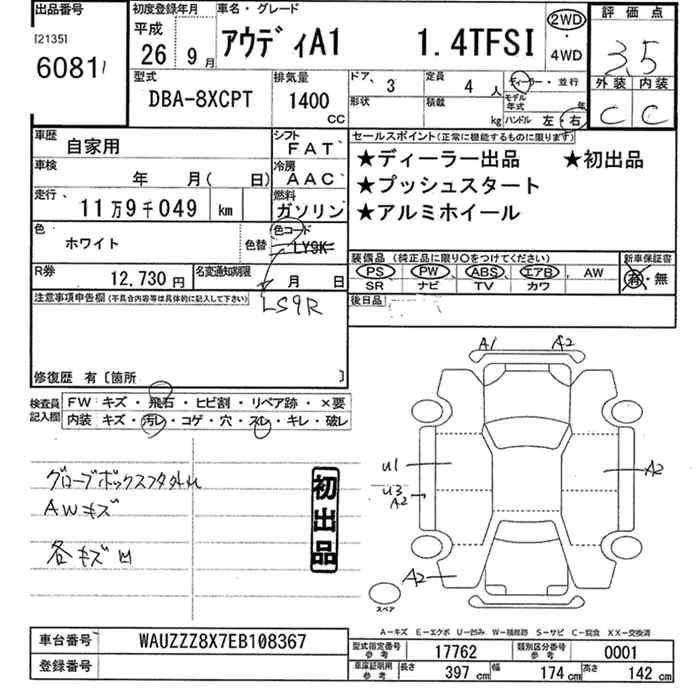 出品番号
[2135]
6081
初度登録年月
平成
26年 9月
車名・グレード
アウディA1 1.4TFSI
2WD
・
4WD
評価点
3.5
外装 内装
C C
型式
DBA-8XCPT
排気量
1400
CC
ドア、 3
定員 4 人
ディーラー・並行
形状
積載 kg
モデル年式 年
ハンドル 左・右
車歴
自家用
シフト
FAT
車検
年 月( 日)
冷房
AAC
走行、
11万9千049 km
燃料
ガソリン
色
ホワイト
色替
色コード
LY9K
LS9R
R券
12,730円
名変通知期限
月 日
セールスポイント(正常に機能するものに限ります)
★ディーラー出品 ★初出品
★プッシュスタート
★アルミホイール
装備品(純正品に限り○をつけてください)
PS PW ABS エアB , AW
SR ナビ TV カワ
新車保証書
有・無
後日品
注意事項申告欄(不具合内容等は具体的に記入して下さい)
修復歴 有〔箇所 〕
検査員記入欄
FW キズ・飛石・ヒビ割・リペア跡・×要
内装 キズ・汚レ・コゲ・穴・スレ・キレ・破レ
グローブボックスフタ外れ
AWキズ
各キズ凹
初出品
A1 A2
U1
U3
A2
A2
A2
スペア
A-キズ E-エクボ U-凹み W-補修跡 S-サビ C-腐食 XX-交換済
車台番号
WAUZZZ8X7EB108367
登録番号
型式指定番号参考
17762
類別区分番号参考
0001
車庫証明用参考
長さ 397 cm
幅 174 cm
高さ 142 cm